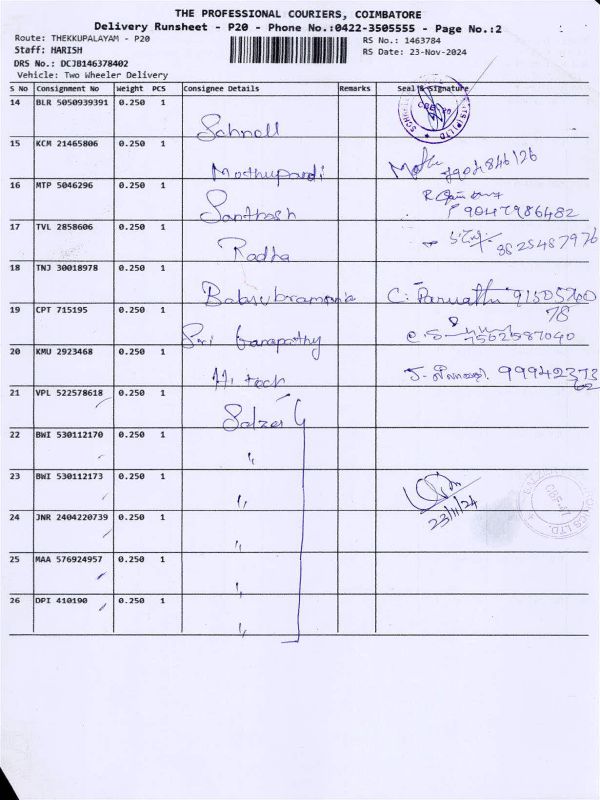 THE PROFESSIONAL COURIERS, COIMBATORE
Delivery Runsheet - P20 - Phone No.:0422-3505555 - Page No.:2
Route: THEKKUPALAYAM - P20
RS No.: 1463784
Staff: HARISH
RS Date: 23-Nov-2024
DRS No.: DCJB146378402
Vehicle: Two Wheeler Delivery
S No Consignment No Weight PCS Consignee Details Remarks Seal & Signature
14 BLR 5050939391 0.250 1
Schnell
15 KCM 21465806 0.250 1
Mothupandi 7904846126
16 MTP 5046296 0.250 1
Santhosh 9047986482
17 TVL 2858606 0.250 1
Radha 8825487976
18 TNJ 30018978 0.250 1
Balasubramania C. Parvathi 91505700
78
19 CPT 715195 0.250 1
Sri Ganapathy 7502587040
20 KMU 2923468 0.250 1
Hi tech 99942373
62
21 VPL 522578618 0.250 1
Salzer
22 BWI 530112170 0.250 1
"
23 BWI 530112173 0.250 1
"
23/11/24
24 JNR 2404220739 0.250 1
"
25 MAA 576924957 0.250 1
"
26 DPI 410190 0.250 1
"